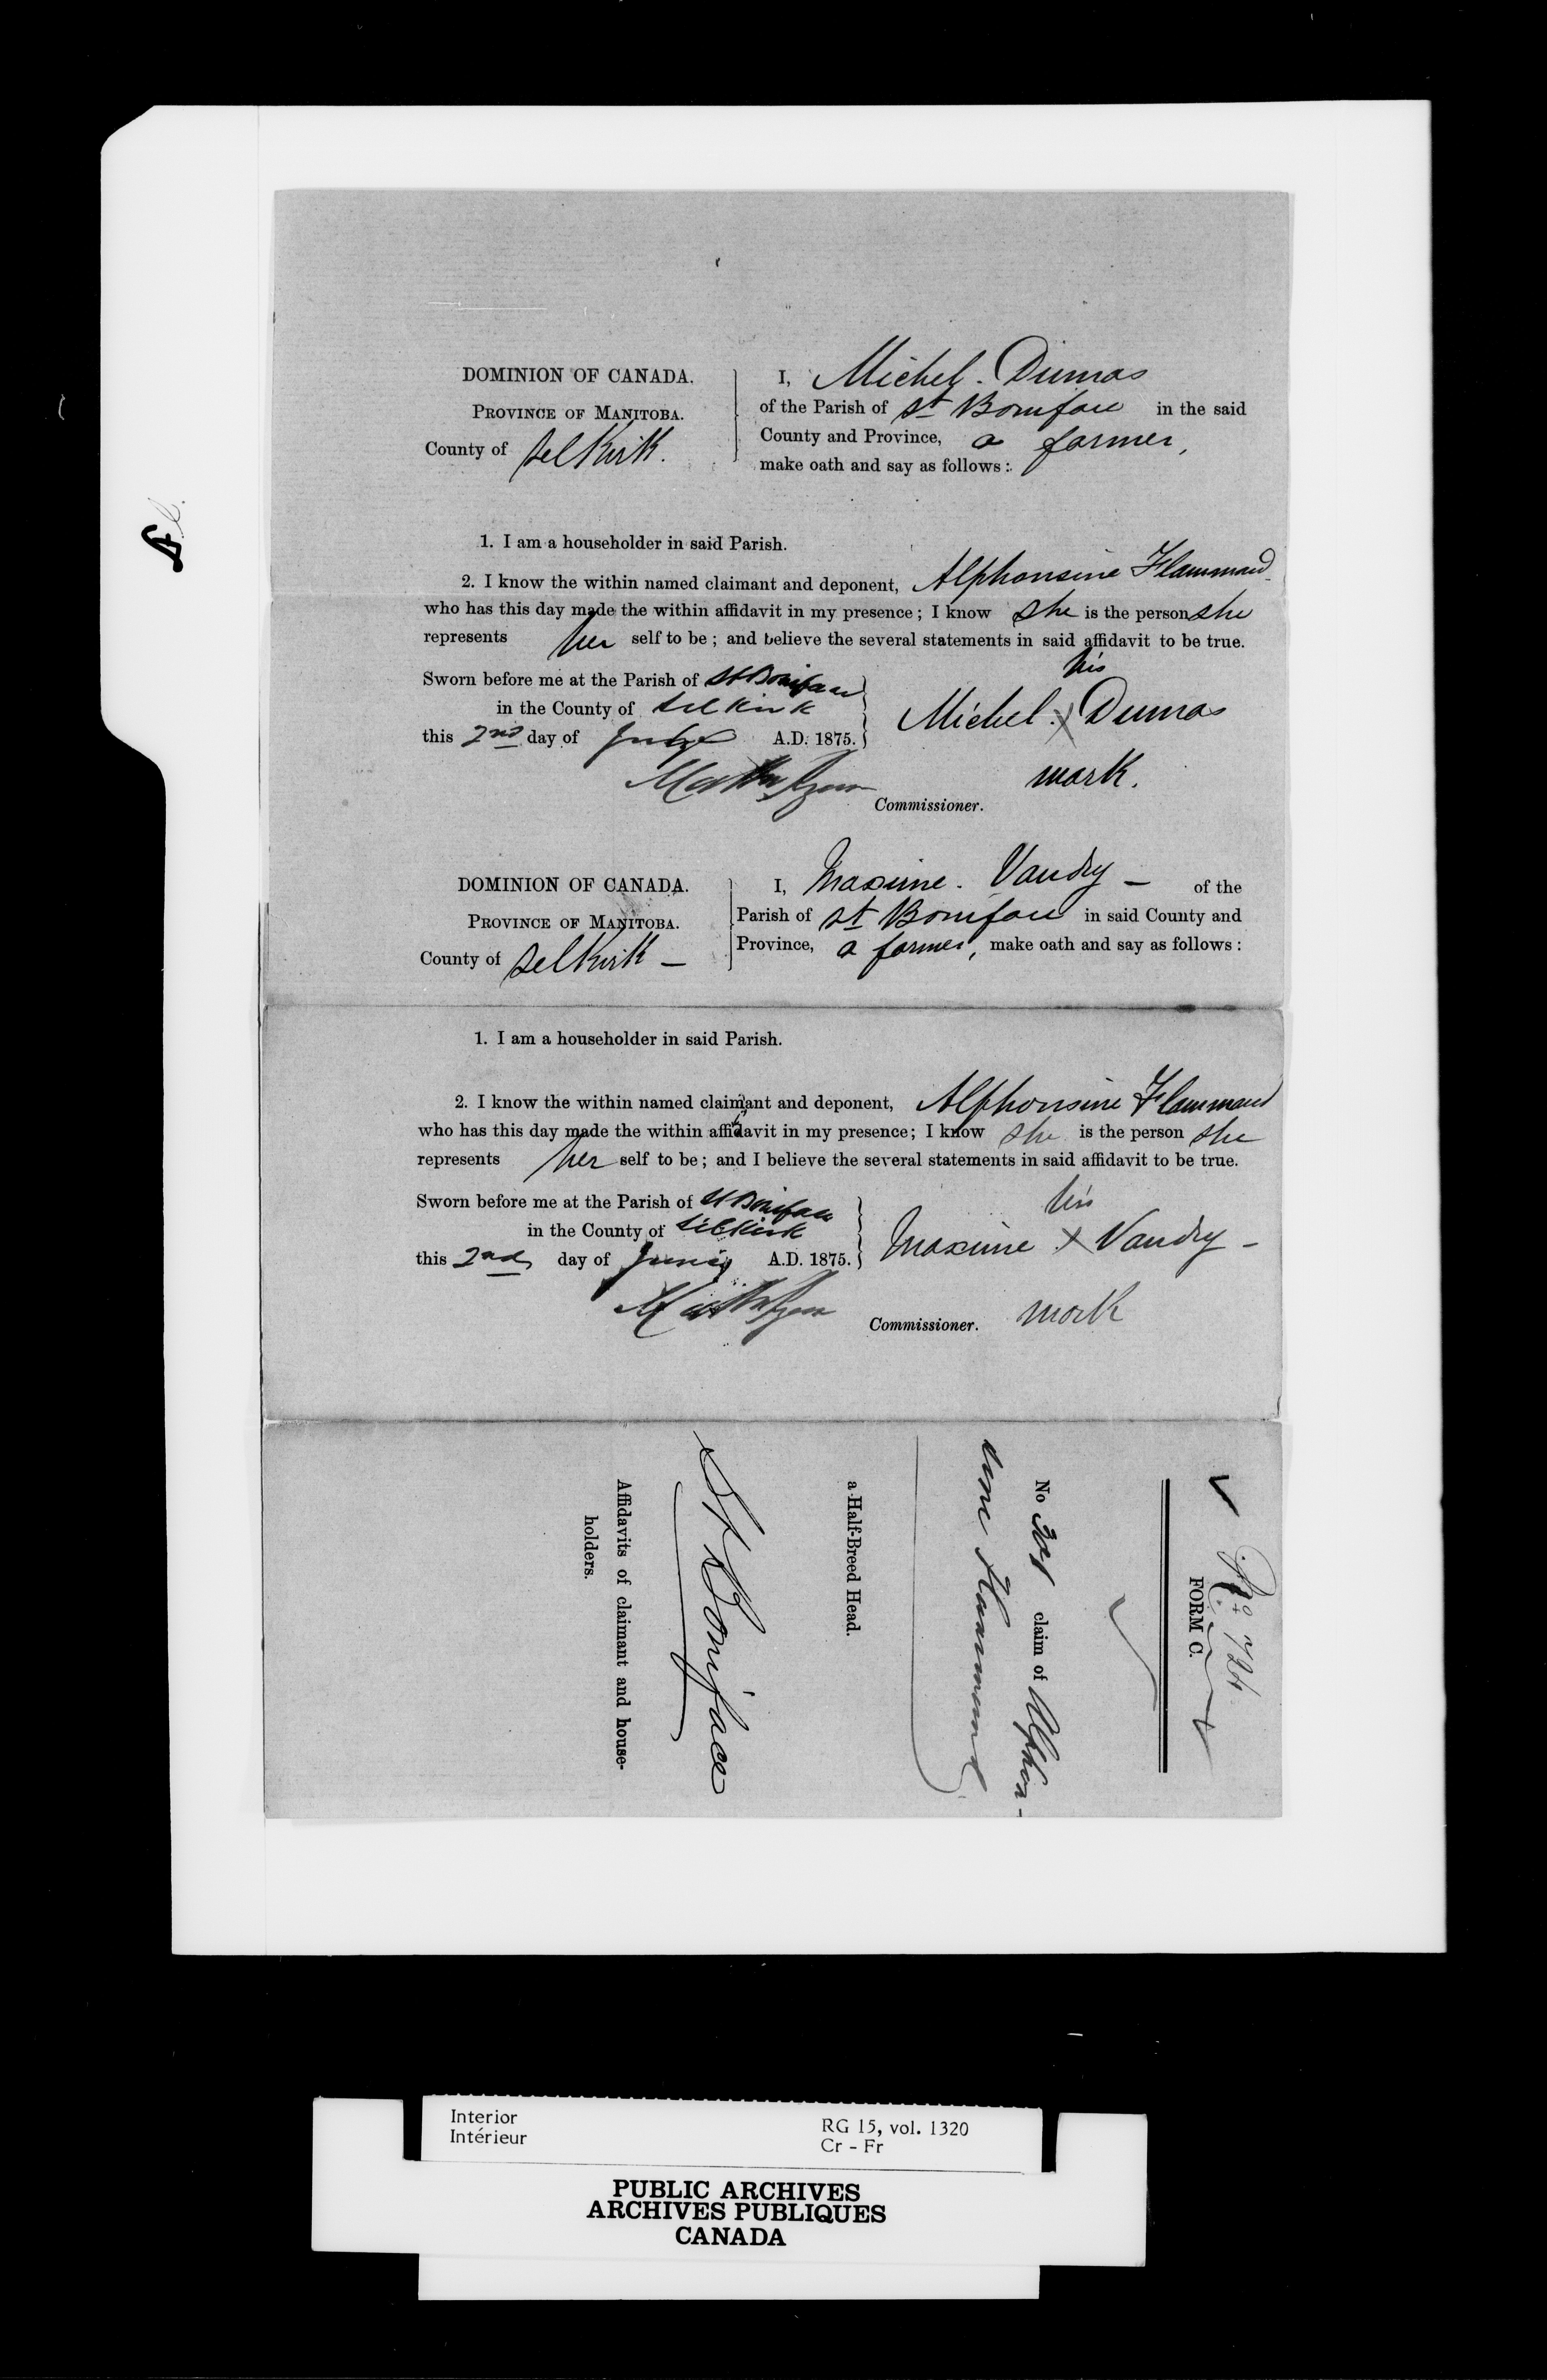 DOMINION OF CANADA.
PROVINCE OF MANITOBA.
County of Selkirk.
I, Michel. Dumas
of the Parish of St Boniface in the said
County and Province, a farmer,
make oath and say as follows:
1. I am a householder in said Parish.
2. I know the within named claimant and deponent, Alphonsine Flammand
who has this day made the within affidavit in my presence; I know she is the person she
represents her self to be; and believe the several statements in said affidavit to be true.
Sworn before me at the Parish of St Boniface
in the County of Selkirk
this 2nd day of A.D. 1875.
his
Michel. X Dumas
mark.
Commissioner.
DOMINION OF CANADA.
PROVINCE OF MANITOBA.
County of Selkirk —
I, Maxime. Vandry — of the
Parish of St Boniface in said County and
Province, a farmer, make oath and say as follows:
1. I am a householder in said Parish.
2. I know the within named claimant and deponent, Alphonsine Flammand
who has this day made the within affidavit in my presence; I know she is the person she
represents her self to be; and I believe the several statements in said affidavit to be true.
Sworn before me at the Parish of St Boniface
in the County of Selkirk
this 2nd day of A.D. 1875.
his
Maxime X Vandry —
mark
Commissioner.
No 724
FORM C.
No 301 claim of Alphon-
sine Flammand
a Half-Breed Head.
St Boniface
Affidavits of claimant and house-
holders.
Interior
Intérieur
RG 15, vol. 1320
Cr - Fr
PUBLIC ARCHIVES
ARCHIVES PUBLIQUES
CANADA